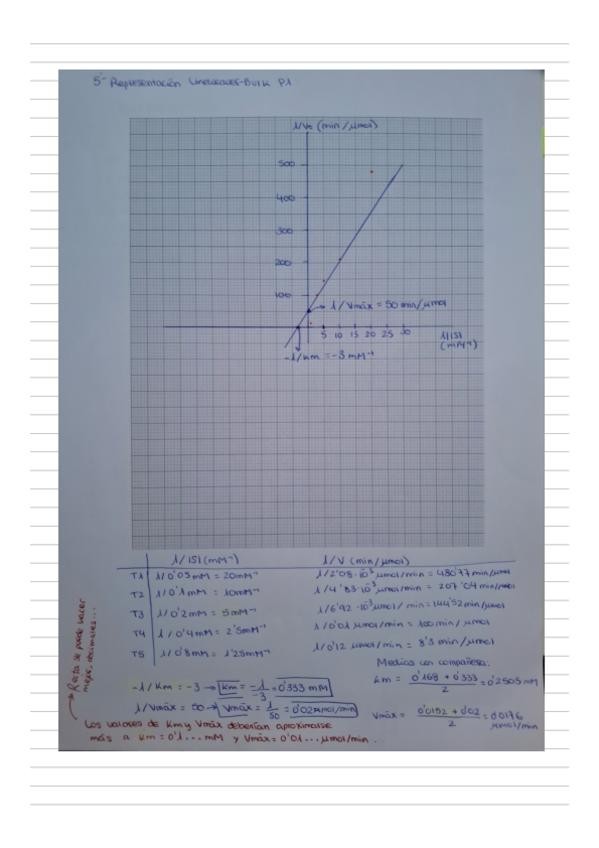 5- Representación Lineweaver-Burk P1
1/V₀ (min/μmol)
500
400
300
200
100
→ 1/Vmáx = 50 min/μmol
5 10 15 20 25 30
1/[S] (mM⁻¹)
-1/Km = -3 mM⁻¹
1/[S] (mM⁻¹) 1/V (min/μmol)
T1 1/0'05mM = 20mM⁻¹ 1/2'08·10⁻³ μmol/min = 480'77 min/μmol
T2 1/0'1mM = 10mM⁻¹ 1/4'83·10⁻³ μmol/min = 207'04 min/μmol
T3 1/0'2mM = 5mM⁻¹ 1/6'92·10⁻³ μmol/min = 144'52 min/μmol
T4 1/0'4mM = 2'5mM⁻¹ 1/0'01 μmol/min = 100 min/μmol
T5 1/0'8mM = 1'25mM⁻¹ 1/0'12 μmol/min = 8'3 min/μmol
Recta se puede hacer
mejor, decimales...
Medias con compañera:
-1/Km = -3 → Km = -1/-3 = 0'333 mM
Km = 0'168 + 0'333 / 2 = 0'2505 mM
1/Vmáx = 50 → Vmáx = 1/50 = 0'02 μmol/min
Vmáx = 0'0152 + 0'02 / 2 = 0'0176 μmol/min
Los valores de Km y Vmáx deberían aproximarse
más a Km = 0'1... mM y Vmáx = 0'01... μmol/min.